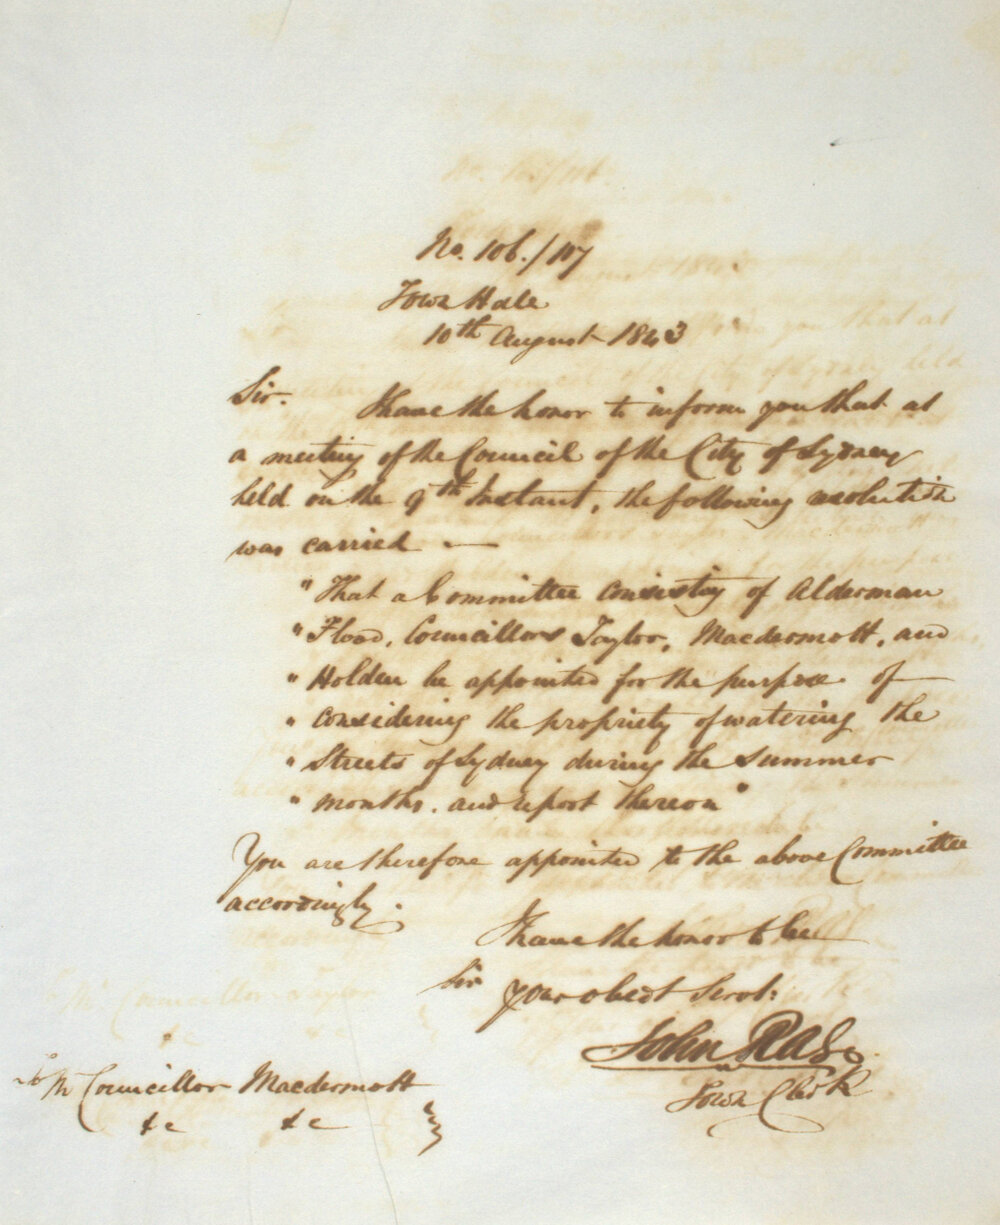 No. 106./107
Town Hall
10th August 1843
Sir. I have the honor to inform you that at
a meeting of the Council of the City of Sydney
held on the 9th Instant, the following resolution
was carried —
"That a Committee Consisting of Alderman
"Flood, Councillors Taylor, Macdermott, and
"Holden be appointed for the purpose of
"Considering the propriety of watering the
"Streets of Sydney during the summer
"months. and report thereon"
You are therefore appointed to the above Committee
accordingly.
I have the honor to be
Sir
your obedt Servt.
John Rae
Town Clerk
To Mr Councillor Macdermott
&c &c